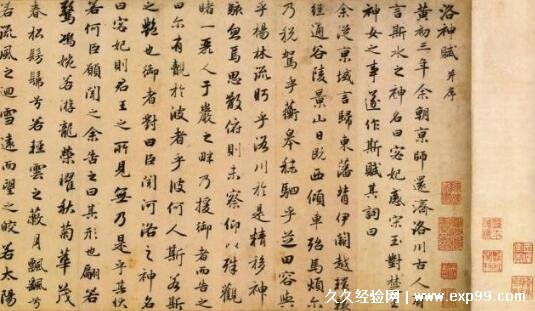 洛神賦 并序
黃初三年余朝京師還濟洛川古人有
言斯水之神名曰宓妃感宋玉對楚王
神女之事遂作斯賦其詞曰
余從京域言歸東藩背伊闕越轘轅
經通谷陵景山日既西傾車殆馬煩尔
乃稅駕乎蘅皋秣駟乎芝田容與
乎楊林流眄乎洛川於是精移神
駭忽焉思散俯則未察仰以殊觀
睹一麗人于巖之畔乃援御者而告之
曰尔有覿於彼者乎彼何人斯若斯
之艷也御者對曰臣聞河洛之神名
曰宓妃則君王之所見無乃是乎其狀
若何臣願聞之余告之曰其形也翩若
驚鴻婉若游龍榮曜秋菊華茂
春松髣髴兮若輕雲之蔽月飄飄兮
若流風之迴雪遠而望之皎若太陽
久久经验网
www.exp99.com